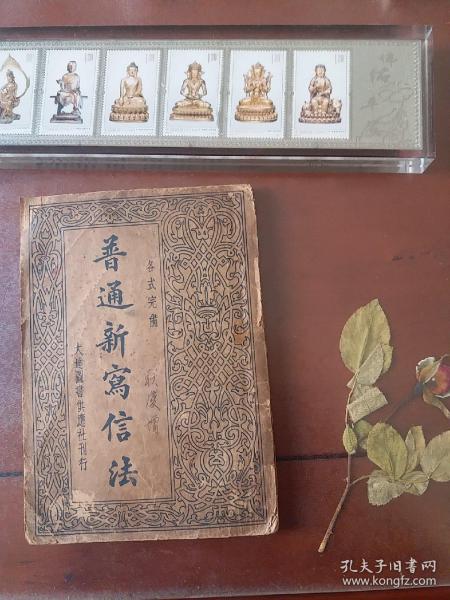 各式完備
普通新寫信法
大達圖書供應社刊行
孔夫子旧书网
www.kongfz.com